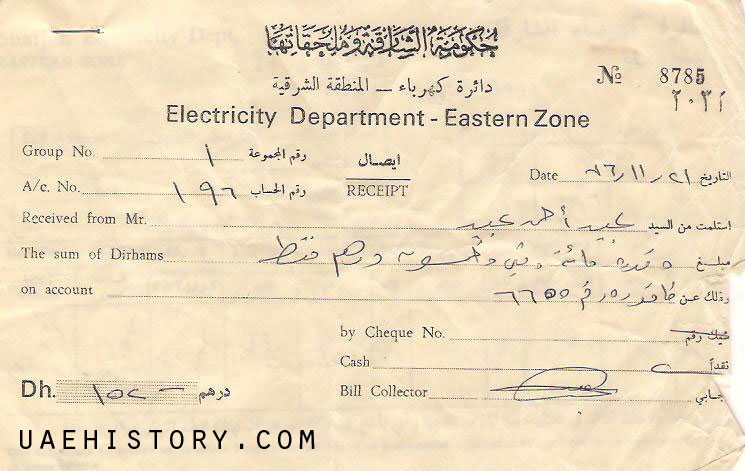 حكومة الشارقة وملحقاتها
دائرة كهرباء — المنطقة الشرقية
№ 8785
Electricity Department - Eastern Zone
Group No. ١ رقم المجموعة
ايصال
RECEIPT
Date ٧٦/١١/٢١ التاريخ
A/c. No. ١٩٦ رقم الحساب
Received from Mr. عبيد أحمد عبيد استلمت من السيد
The sum of Dirhams مائة وخمسون درهم فقط مبلغ
on account ٦٦٥٥ وذلك عن
by Cheque No. شيك رقم
Cash نقداً
Dh. درهم
Bill Collector جابي
UAEHISTORY.COM